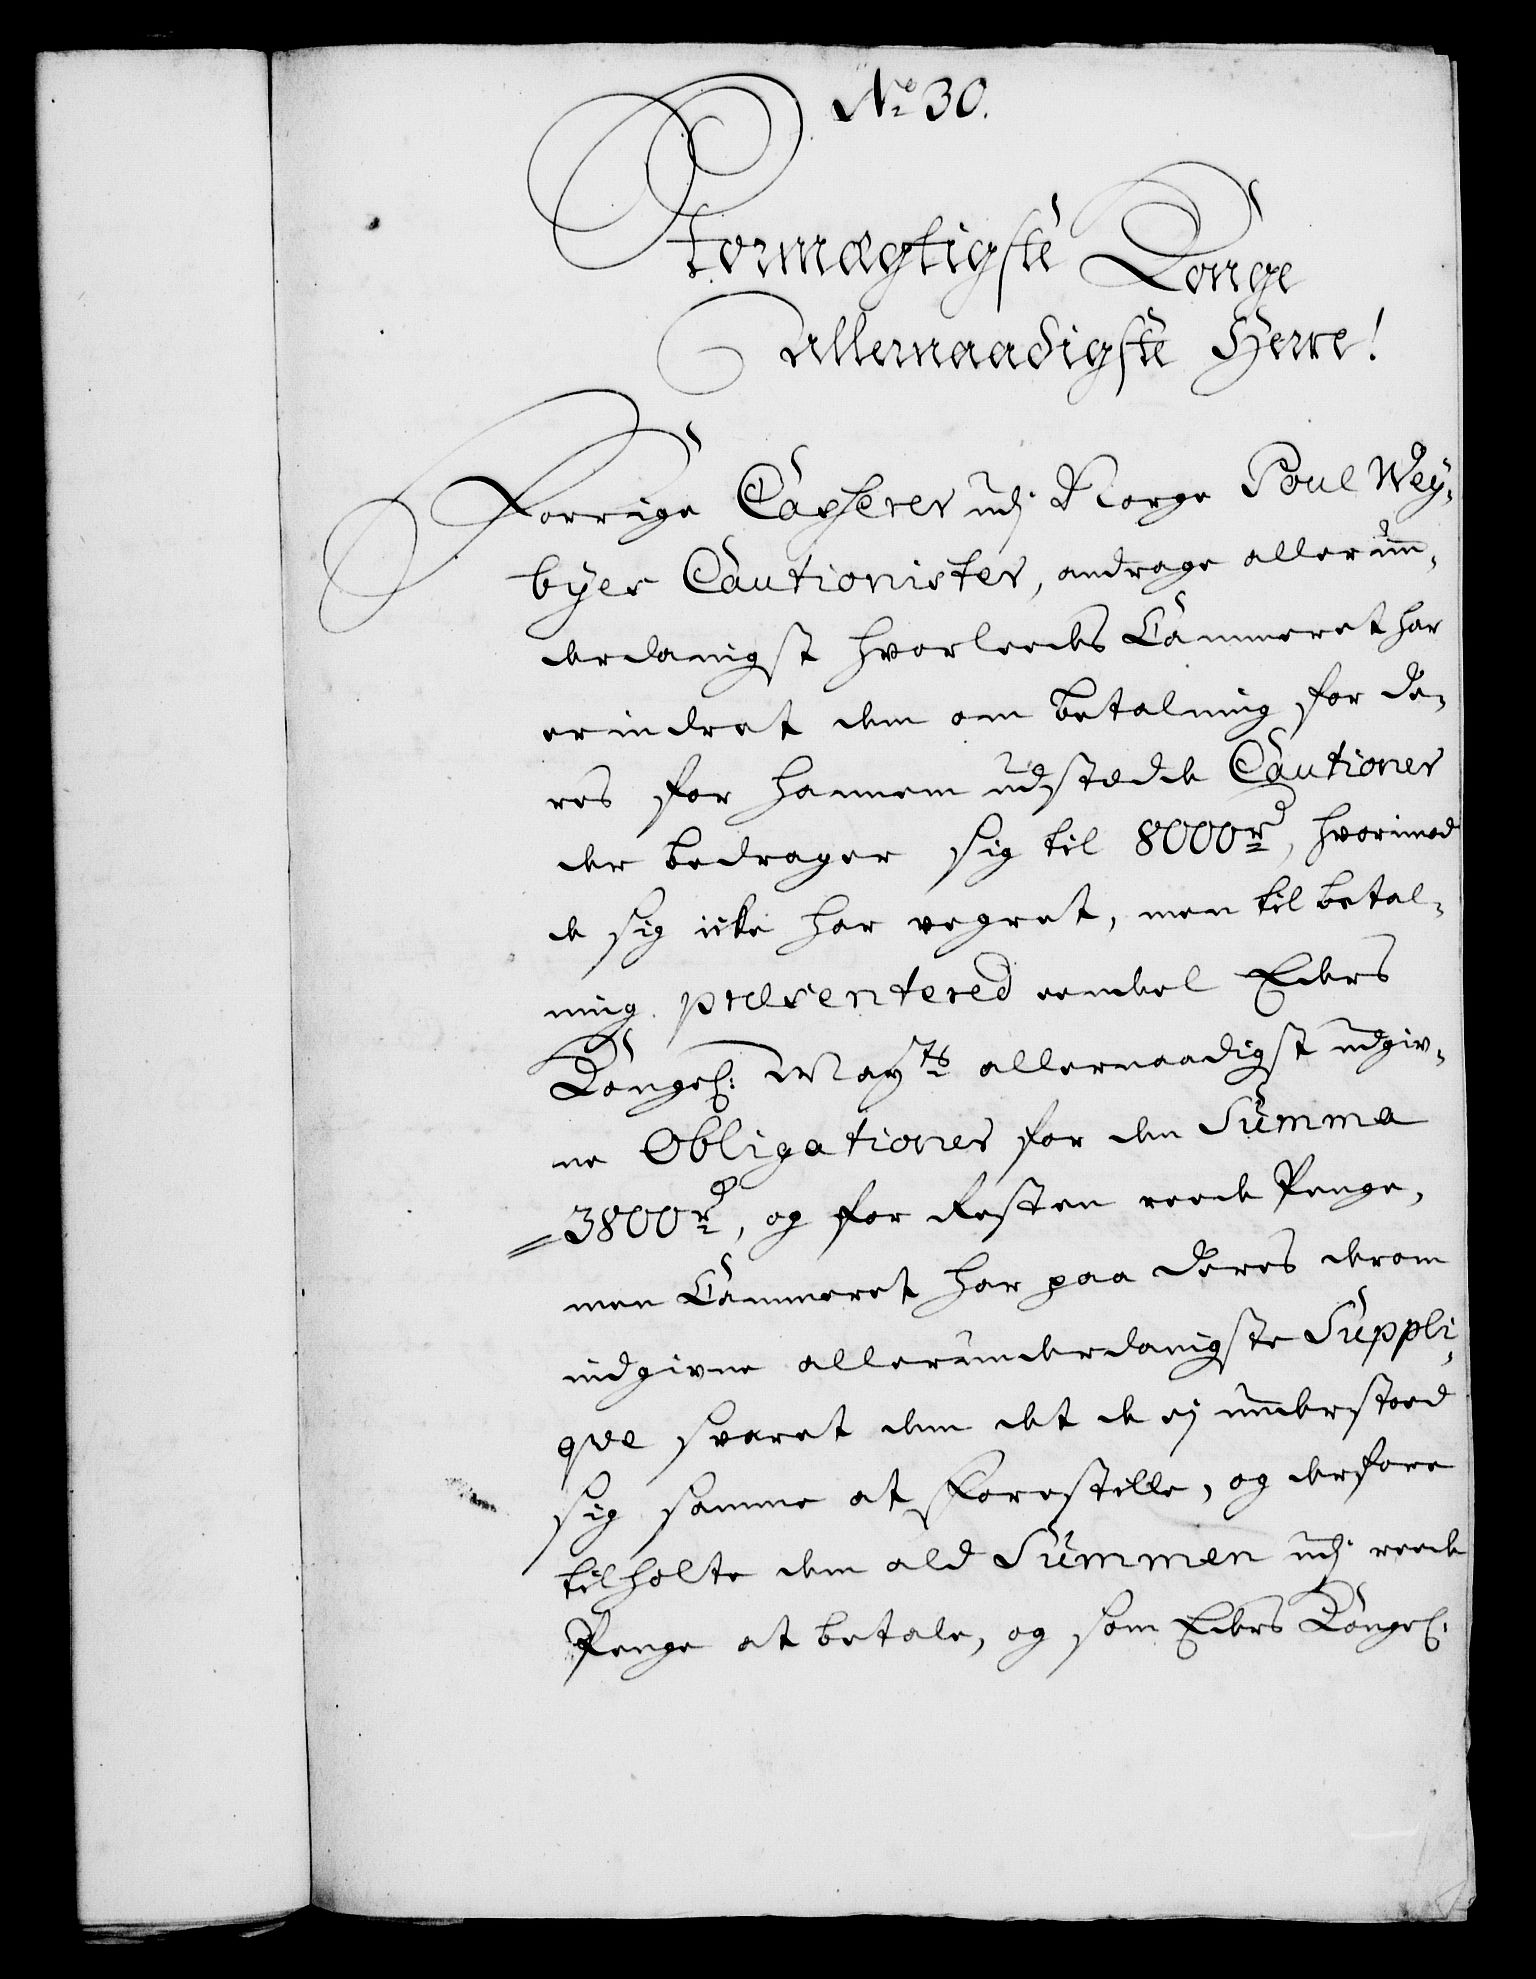 No 30.
Stormægtigste Konge
allernaadigste Herre!
Forrige Casserer udj Norge Poul Wey-
byes Cautionister, andrage allerun-
derdanigst hvorleedes Cammeret har
erindret dem om betalning for de-
res for hannem udstædde Cautioner
der bedrager sig til 8000 rd, hvorimod
de sig icke har vegret, men til betal-
ning præsentered eendeel Eders
Kongel: Mayts allernaadigst udgiv-
ne Obligationer for den Summa
3800 rd, og for Resten reede Penge,
men Cammeret har paa deres derom
indgivne allerunderdanigste Suppli-
qve svaret dem det de ej understoed
sig samme at forestille, og derfore
tilholte dem ald Summen udj reede
Penge at betale, og som Eders Kongel: